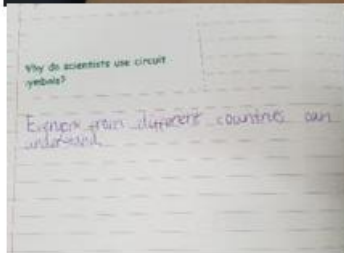 Why do scientists use circuit
symbols?
from different countries can
understand.